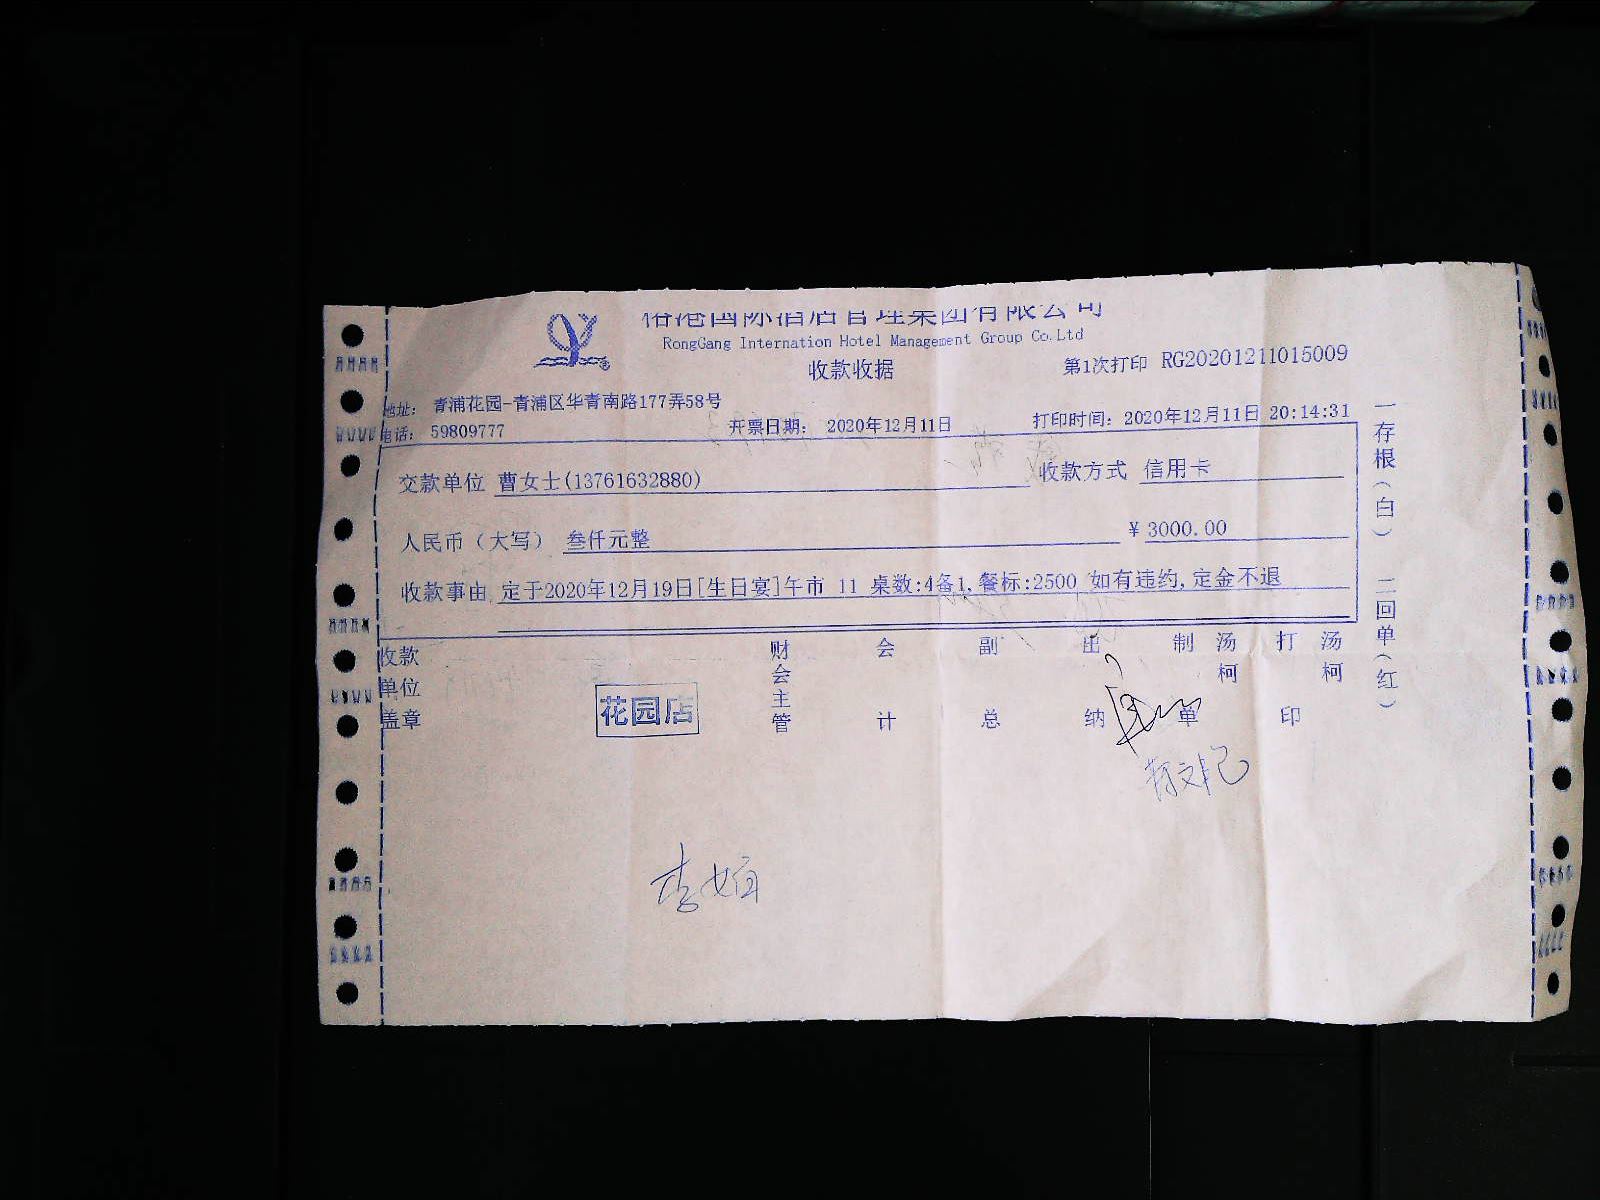 国际酒店管理集团有限公司
RongGang Internation Hotel Management Group Co.Ltd
收款收据
第1次打印 RG20201211015009
地址: 青浦花园-青浦区华青南路177弄58号
电话: 59809777
开票日期: 2020年12月11日
打印时间: 2020年12月11日 20:14:31
交款单位 曹女士(13761632880)
收款方式 信用卡
人民币（大写） 叁仟元整
¥ 3000.00
收款事由 定于2020年12月19日[生日宴]午市 11 桌数:4备1,餐标:2500 如有违约,定金不退
一存根（白） 二回单（红）
收款单位盖章
花园店
财会主管
会计
副总
出纳
制单
汤柯
打印
汤柯